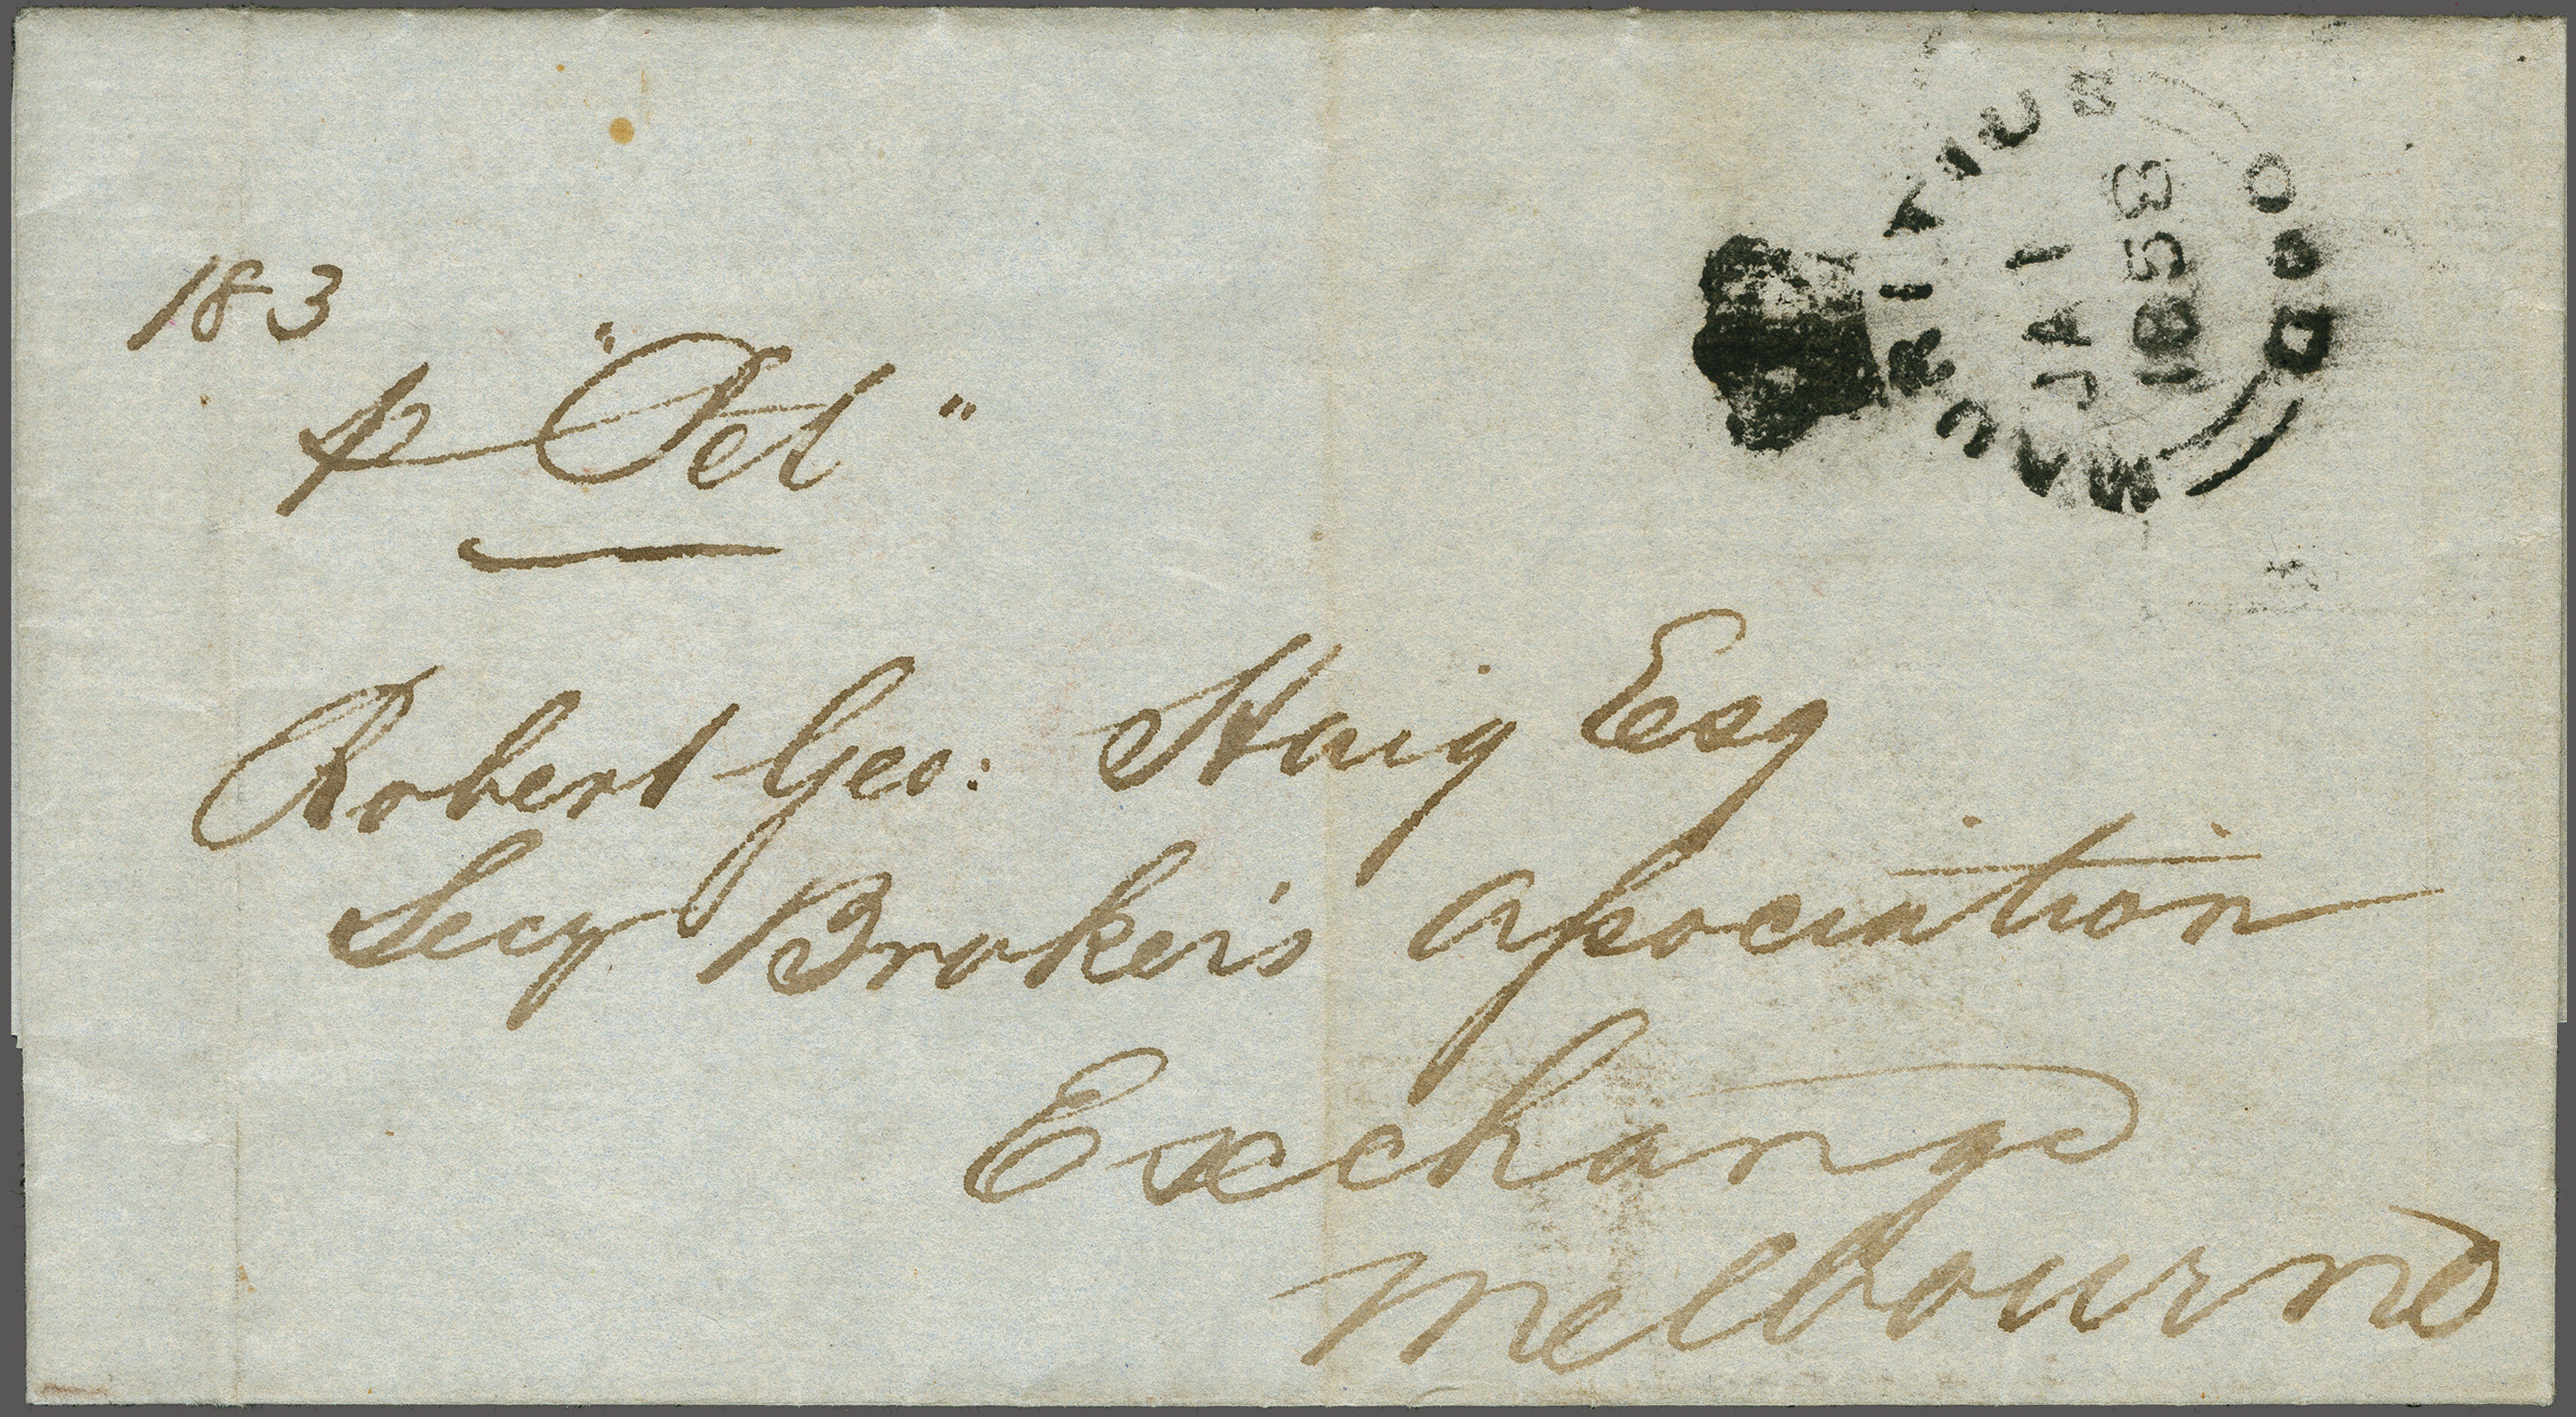 MAURITIUS
JA 1
1858
183
p "Pet"
Robert Geo: Haig Esq
Secy Broker's Association
Exchange
Melbourne